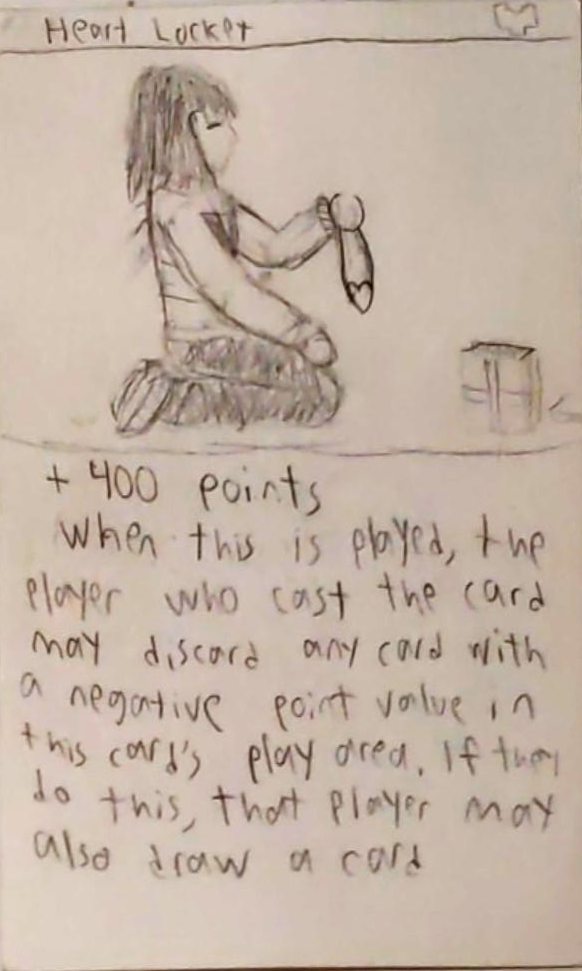 Heart Locket
+ 400 points
When this is played, the
player who cast the card
may discard any card with
a negative point value in
this card's play area. If they
do this, that player may
also draw a card